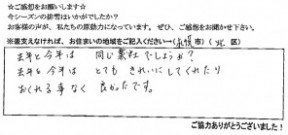 ☆ご感想をお願いします☆
今シーズンの排雪はいかがでしたか？
お客様の声が、私たちの原動力になっています。ぜひ、ご感想をお聞かせ下さい。
※差支えなければ、お住まいの地域をご記入ください→(札幌市)(北区)
去年と今年は 同じ業社でしょうか？
去年を今年は とてもきれいにしてくれたり
おくれる事なく 良かったです。
ご協力ありがとうございました！